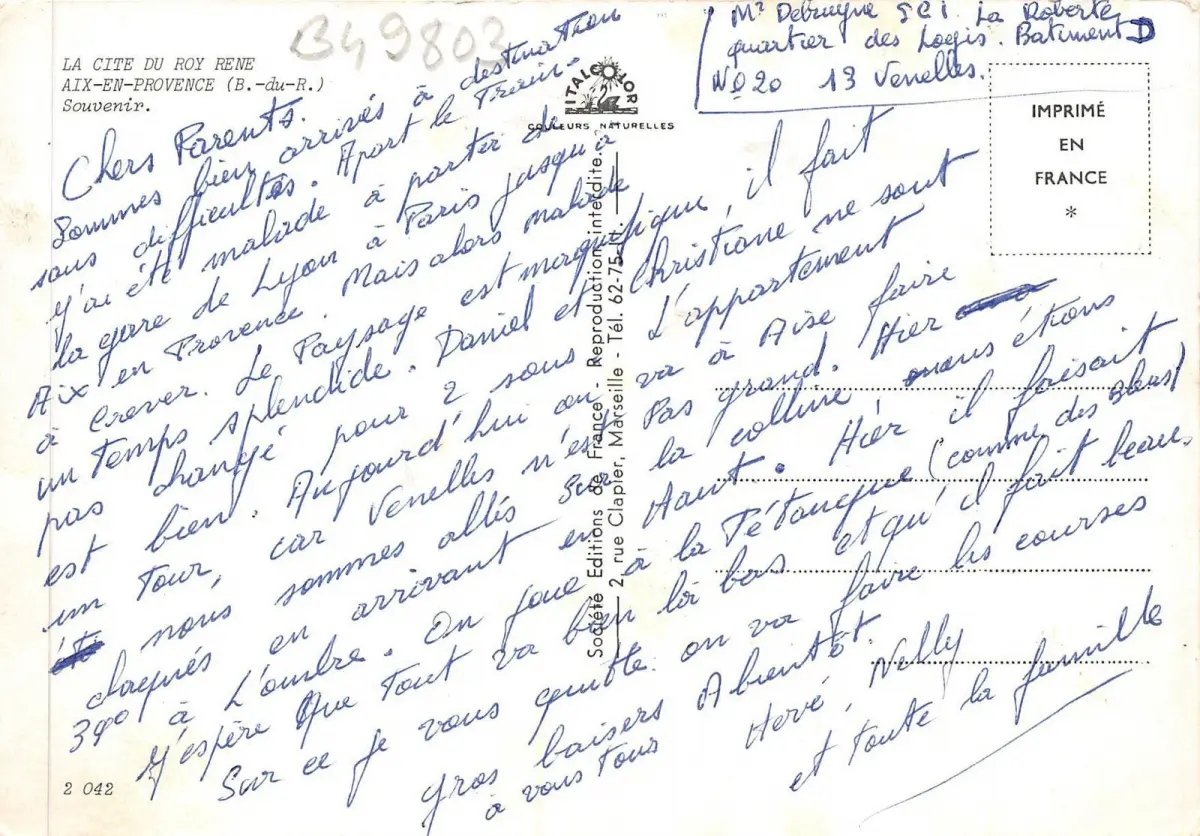 B49803
LA CITE DU ROY RENE
AIX-EN-PROVENCE (B.-du-R.)
Souvenir.
ITALCOLOR
COULEURS NATURELLES
Mr Debruyne SCI. La Roberte
quartier des Logis. Batiment D
No 20 13 Venelles.
IMPRIMÉ
EN
FRANCE
*
Chers Parents.
Sommes bien arrivés à destination
sous difficultés. Apart le Train.
J'ai été malade à parter de
la gare de Lyon à Paris jusqu'à
Aix en Provence. Mais alors malade
à crever. Le Paysage est magnifique, il fait
un Temps splendide. Daniel et Christiane ne sont
pas changé pour 2 sous L'appartement
est bien. Aujourd'hui on va à Aise faire
un Tour, car Venelles n'est Pas grand. Hier
nous sommes allés sur la colline nous étions
claqués en arrivant en Haut. Hier il faisait
39° à L'ombre. On joue à la Pétanque (comme des Bleus)
J'espère Que Tout va bien là bas et qu'il fait beau.
Sur ce je vous quitte on va faire les courses
gros baisers A bientôt.
à vous Tous Hervé, Nelly
et toute la famille
Société Editions de France - Reproduction interdite.
2, rue Clapier, Marseille - Tél. 62-75-11.
2 042